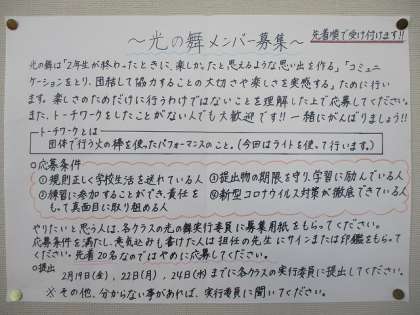 ～光の舞メンバー募集～
先着順で受け付けます!!
光の舞は「2年生が終わったときに、楽しかったと思えるような思い出を作る」「コミュニ
ケーションをとり、団結して協力することの大切さや楽しさを実感する」ために行い
ます。楽しさのためだけに行うわけではないことを理解した上で応募してください。
また、トーチワークをしたことがない人でも大歓迎です!! 一緒にがんばりましょう!!
トーチワークとは
団体で行う火の棒を使ったパフォーマンスのこと。(今回はライトを使って行います。)
○応募条件
①規則正しく学校生活を送れている人
②練習に参加することができ、責任を
もって真面目に取り組める人
③提出物の期限を守り、学習に励んでいる人
④新型コロナウイルス対策が徹底できている人
やりたいと思う人は、各クラスの光の舞実行委員に募集用紙をもらってください。
応募条件を満たし、意気込みも書けた人は担任の先生にサインまたは印鑑をもらって
ください。先着20名なのではやめに応募してください。
○提出
2月19日(金)、22日(月)、24日(水)までに各クラスの実行委員に提出してください。
※その他、分からない事があれば、実行委員に聞いてください。